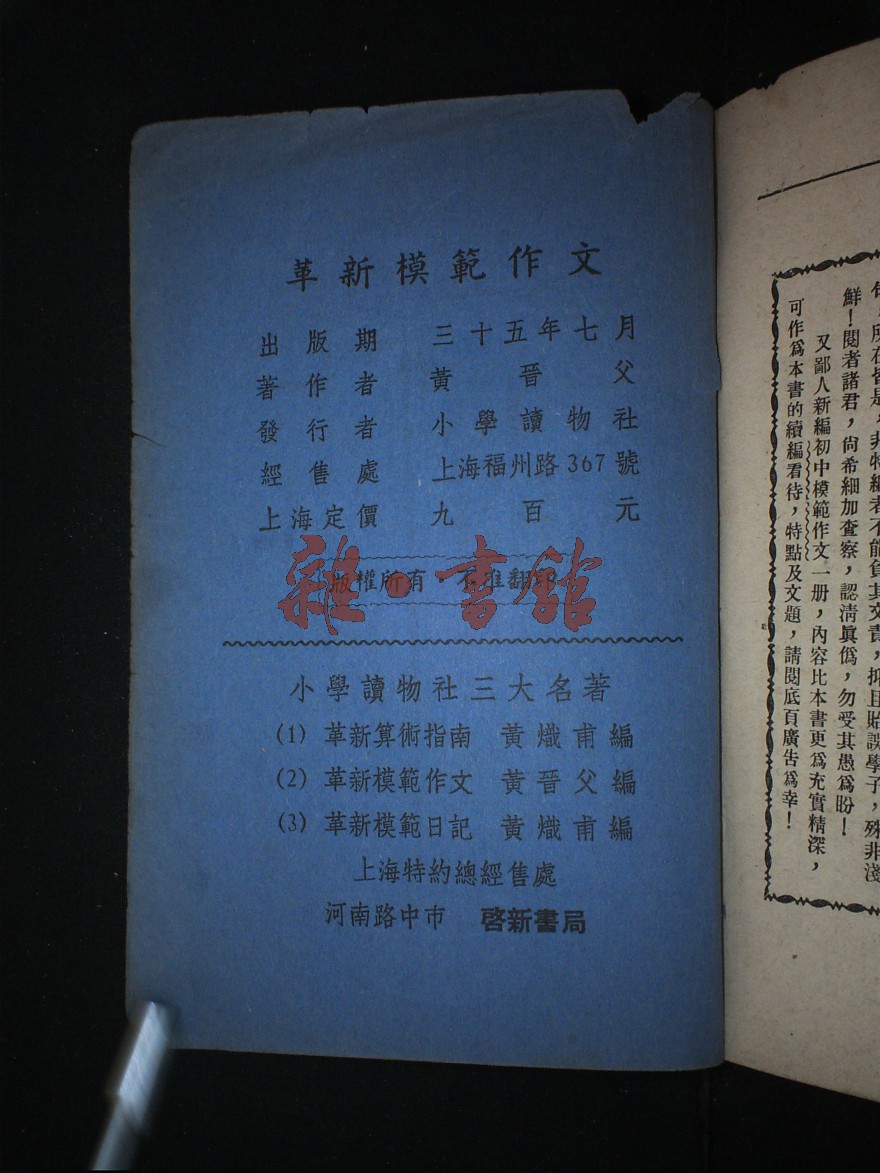 革新模範作文
出版期 三十五年七月
著作者 黃晉父
發行者 小學讀物社
經售處 上海福州路367號
上海定價 九百元
版權所有 不准翻印
雜·書館
小學讀物社三大名著
(1) 革新算術指南 黃熾甫編
(2) 革新模範作文 黃晉父編
(3) 革新模範日記 黃熾甫編
上海特約總經售處
河南路中市 啓新書局
所在皆是，非特編者不能負其文責，抑且貽誤學子，殊非淺
鮮！閱者諸君，尙希細加查察，認淸眞僞，勿受其愚爲盼！
又鄙人新編初中模範作文一册，內容比本書更爲充實精深，
可作爲本書的續編看待，特點及文題，請閱底頁廣告爲幸！